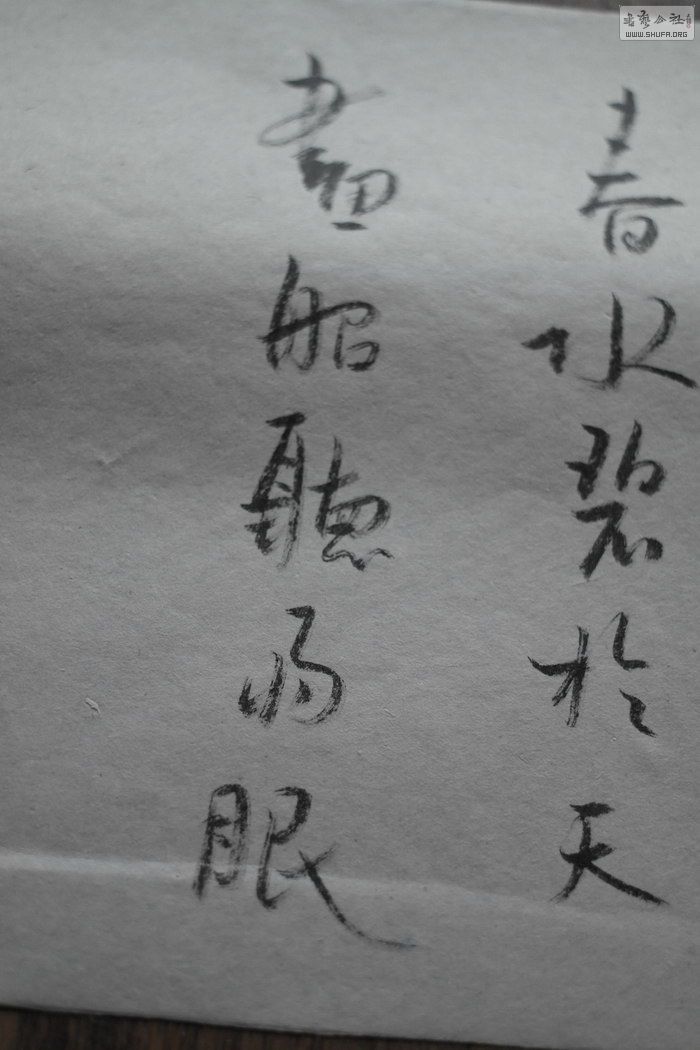 春水碧於天
畫船聽雨眠
書藝公社
WWW.SHUFA.ORG